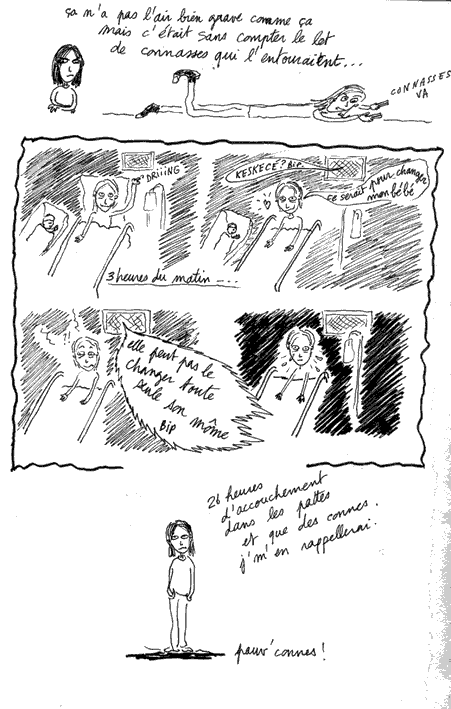 ça n'a pas l'air bien grave comme ça
mais c'était sans compter le lot
de connasses qui l'entouraient...
CONNASSES
VA
DRiiiNG
3 heures du matin ....
KESKECÉ? BiP
ce serait pour changer
mon bébé
elle peut pas le
changer toute
seule son môme
BiP
26 heures
d'accouchement
dans les pattes
et que des connes.
j'm'en rappellerai.
pauv'connes!